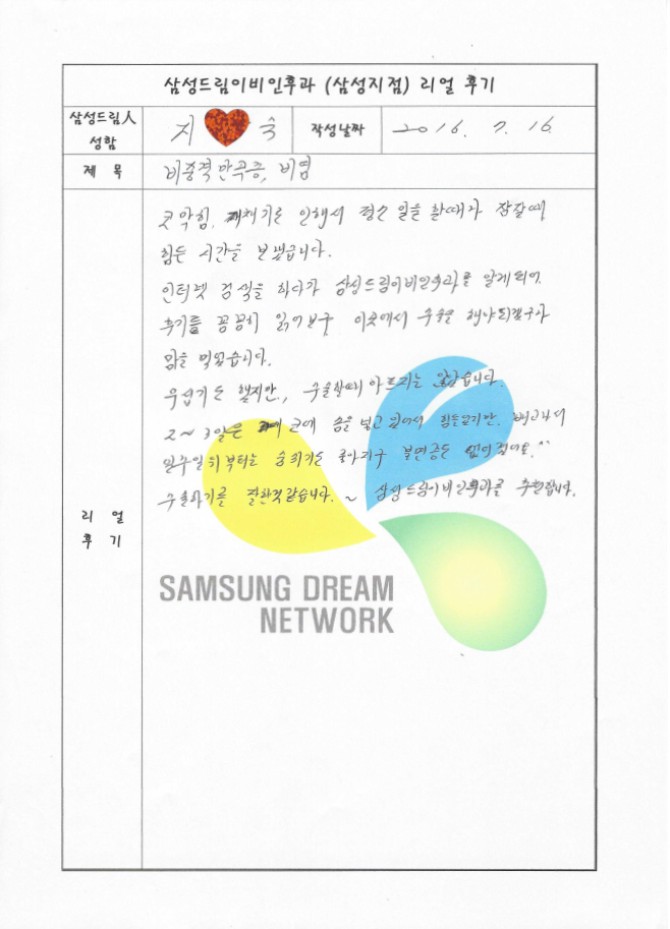 삼성드림이비인후과 (삼성지점) 리얼 후기
삼성드림人
성함
지 숙
작성날짜
2016. 7. 16
제 목
비중격만곡증, 비염
코막힘, 재채기로 인해서 평소 일을 할때나 잠잘때
힘든 시간을 보냈습니다.
인터넷 검색을 하다가 삼성드림이비인후과를 알게되어
후기를 꼼꼼히 읽어보구 이곳에서 수술 해야되겠구나
맘을 먹었습니다.
무섭기도 했지만, 수술할때 아프지는 않았습니다.
2~3일은 코에 솜을 넣고 있어서 힘들었지만. 빼고나니
일주일뒤부터는 숨쉬기도 좋아지구 불면증도 없어졌어요.^^
수술하기를 잘한것같습니다. ~ 삼성드림이비인후과를 추천합니다.
리 얼
후 기
SAMSUNG DREAM
NETWORK